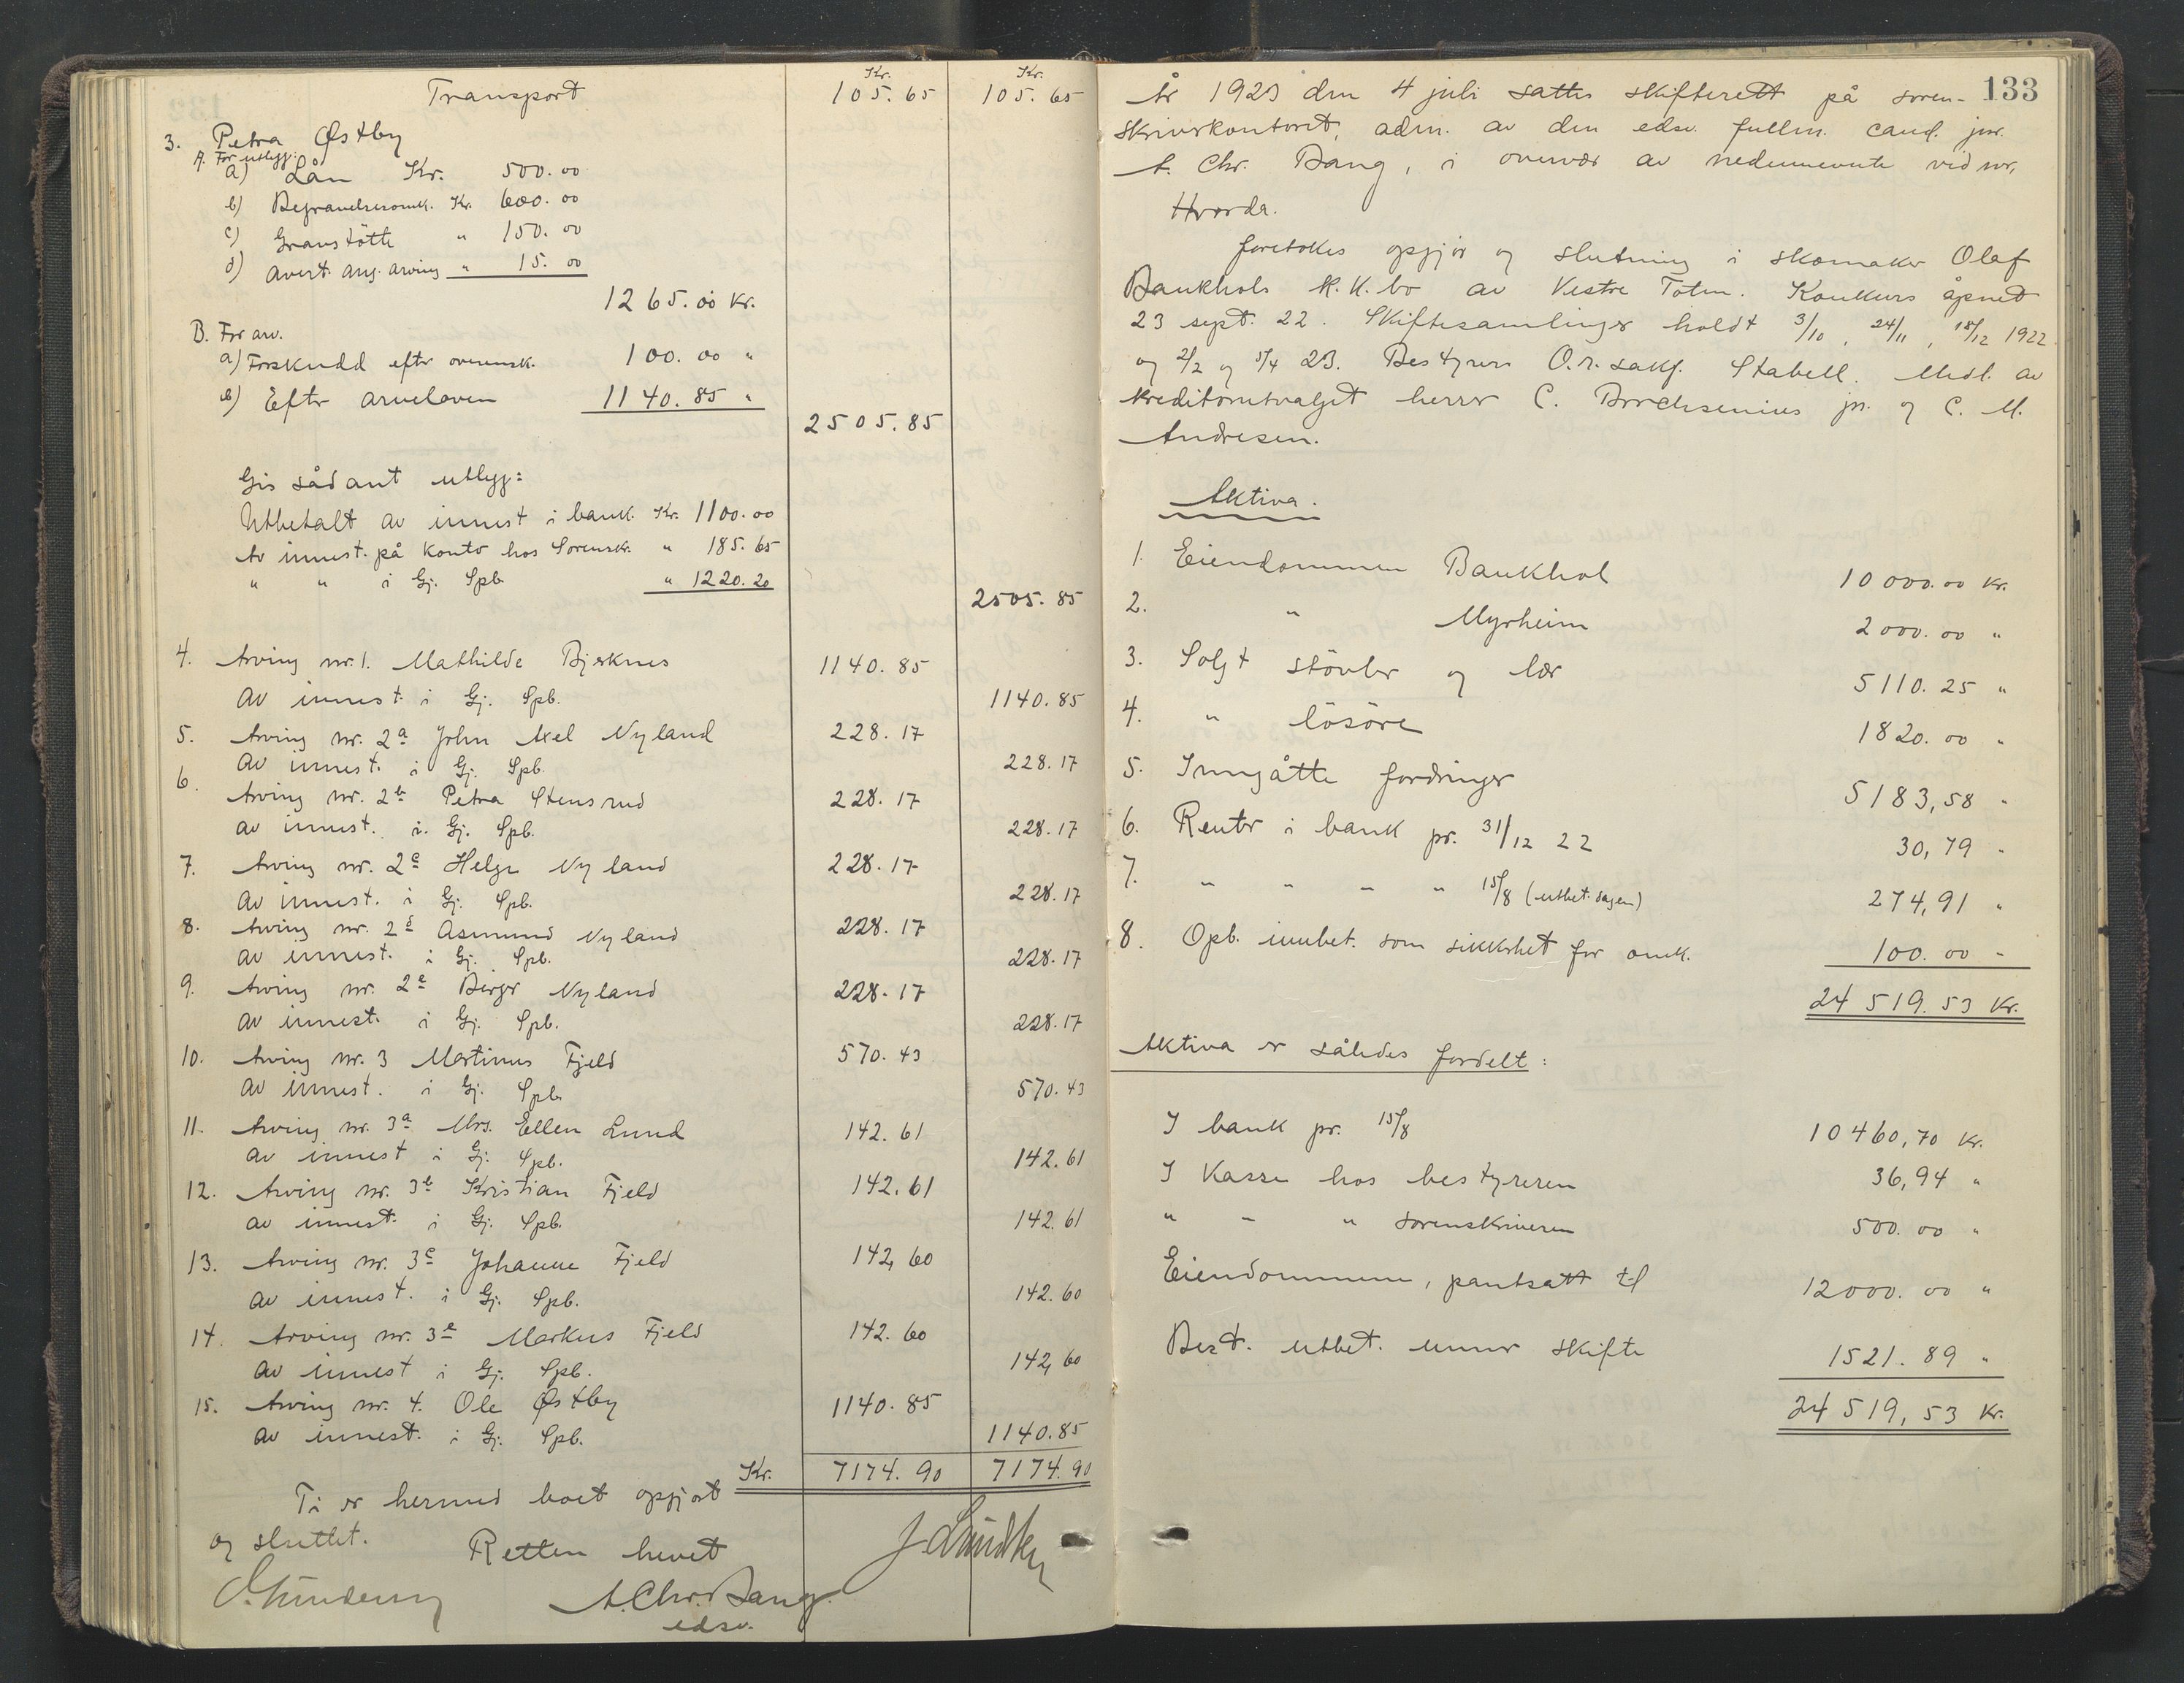 Kr. Kr.
Transport 105.65 105.65
3. Petra Østby
A. For utlegg:
a) Lån Kr. 500.00
b) Begravelsesomk. Kr. 600.00
c) Gravstötte " 150.00
d) Avert. ang. arving " 15.00
1265.00 Kr.
B. For arv.
a) Forskudd efter overensk. 100.00 "
b) Efter arveloven 1140.85 "
2505.85
Gis sådant utlegg:
Utbetalt av innest i bank. Kr. 1100.00
Av innest. på konto hos Sorensk. " 185.65
" " i Gj. Spb. " 1220.20
2505.85
4. Arving nr. 1. Mathilde Bjerknes 1140.85
av innest. i Gj. Spb. 1140.85
5. Arving nr. 2a John Axel Nyland 228.17
av innest. i Gj. Spb. 228.17
6. Arving nr. 2b Petra Stensrud 228.17
av innest. i Gj. Spb. 228.17
7. Arving nr. 2c Helge Nyland 228.17
av innest. i Gj. Spb. 228.17
8. Arving nr. 2d Asmund Nyland 228.17
av innest. i Gj. Spb. 228.17
9. Arving nr. 2e Birger Nyland 228.17
av innest. i Gj. Spb. 228.17
10. Arving nr. 3 Martinus Fjeld 570.43
av innest. i Gj. Spb. 570.43
11. Arving nr. 3a Mrs. Ellen Lund 142.61
av innest i Gj. Spb. 142.61
12. Arving nr. 3b Kristian Fjeld 142.61
av innest. i Gj. Spb. 142.61
13. Arving nr. 3c Johanne Fjeld 142,60
av innest. i Gj. Spb. 142.60
14. Arving nr. 3d Markus Fjeld 142.60
av innest i Gj. Spb. 142,60
15. Arving nr. 4. Ole Østby 1140.85
av innest. i Gj. Spb. 1140.85
Kr. 7174.90 7174.90
Ti er hermed boet opgjort
og sluttet. Retten hevet
A. Chr. Bang.
edsv.
133
År 1923 den 4 juli sattes skifterett på soren-
skriverkontoret, adm. av den edsv. fullm. cand. jur.
A. Chr. Bang, i overvær av nedennevnte vidner,
Hvorda.
foretokes opgjør og slutning i skomaker Olaf
Baukhols K.K.bo av Vestre Toten. Konkurs åpnet
23 sept. 22. Skiftesamlinger holdt 3/10, 24/11, 18/12 1922
og 2/2 og 5/4 23. Bestyrer O.r.sakf. Stabell. Medl. av
kreditorutvalget herrer C. Borchsenius jr. og C. M.
Andresen.
Aktiva.
1. Eiendommen Baukhol 10000.00 Kr.
2. " Myrheim 2000.00 "
3. Solgt stövler og lær 5110.25 "
4. " lösöre 1820.00 "
5. Inngåtte fordringer 5183,58 "
6. Renter i bank pr. 31/12 22 30,79 "
7. " " " " 15/8 (utbet.dagen) 274,91 "
8. Opb. innbet. som sikkerhet for omk. 100.00 "
24 519.53 Kr.
Aktiva er således fordelt:
I bank pr. 15/8 10460,70 Kr.
I Kasse hos bestyreren 36,94 "
" " " sorenskriveren 500.00 "
Eiendommene, pantsatt til 12000.00 "
Best. utbet. under skifte 1521.89 "
24 519,53 Kr.